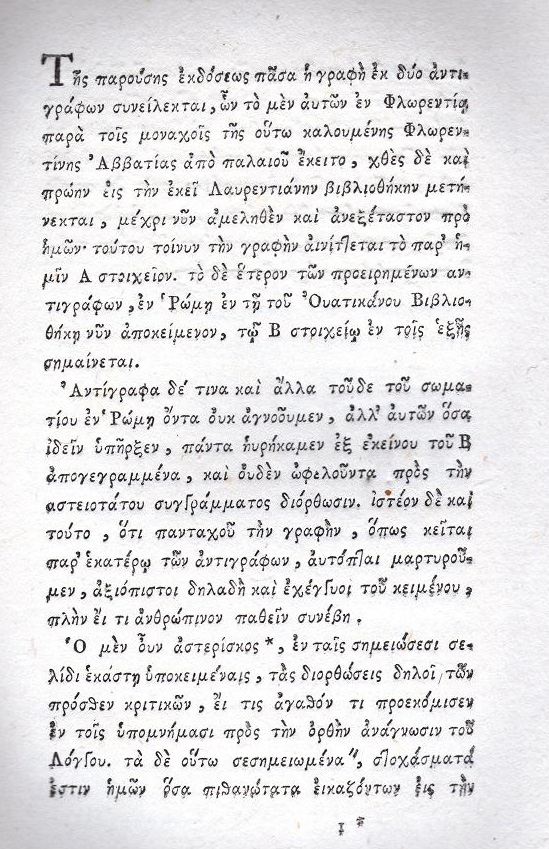 Τῆς παρούσης ἐκδόσεως πᾶσα ἡ γραφὴ ἐκ δύο ἀντι-
γράφων συνείλεκται, ὧν τὸ μὲν ἀυτῶν ἐν Φλωρεντίᾳ
παρὰ τοῖς μοναχοῖς τῆς ὅυτω καλουμένης Φλωρεν-
τίνης Ἀββατίας ἀπὸ παλαιοῦ ἔκειτο, χθὲς δὲ καὶ
πρώην ἐις τὴν ἐκεῖ Λαυρεντιάνην βιβλιοθήκην μετή-
νεκται, μέχρι νῦν ἀμεληθὲν καὶ ἀνεξέταστον πρὸ
ἡμῶν· τούτου τοίνυν τὴν γραφὴν ἀινίττεται τὸ παρ' ἡ-
μῖν Α στοιχεῖον. τὸ δὲ ἕτερον τῶν προειρημένων ἀν-
τιγράφων, ἐν Ῥώμῃ ἐν τῇ τοῦ Ὀυατικάνου Βιβλιο-
θήκῃ νῦν ἀποκείμενον, τῷ Β στοιχείῳ ἐν τοῖς ἑξῆς
σημαίνεται.
Ἀντίγραφα δέ τινα καὶ ἄλλα τοῦδε τοῦ σωμα-
τίου ἐν Ῥώμῃ ὄντα ὀυκ ἀγνοοῦμεν, ἀλλ' ἀυτῶν ὅσα
ἰδεῖν ὑπῆρξεν, πάντα ἡυρήκαμεν ἐξ ἐκείνου τοῦ Β
ἀπογεγραμμένα, καὶ ὀυδὲν ὠφελοῦντα πρὸς τὴν
ἀστειοτάτου συγγράμματος διόρθωσιν. ἰστέον δὲ καὶ
τοῦτο, ὅτι πανταχοῦ τὴν γραφὴν, ὅπως κεῖται
παρ' ἑκατέρῳ τῶν ἀντιγράφων, ἀυτόπται μαρτυροῦ-
μεν, ἀξιόπιστοι δηλαδὴ καὶ ἐχέγγυοι τοῦ κειμένου,
πλὴν ἔι τι ἀνθρώπινον παθεῖν συνέβη.
Ὁ μὲν ὄυν ἀστερίσκος *, ἐν ταῖς σημειώσεσι σε-
λίδι ἑκάστῃ ὑποκειμέναις, τὰς διορθώσεις δηλοῖ τῶν
πρόσθεν κριτικῶν, ἔι τις ἀγαθόν τι προεκόμισεν
ἐν τοῖς ὑπομνήμασι πρὸς τὴν ὀρθὴν ἀνάγνωσιν τοῦ
Λόγγου. τὰ δὲ ὅυτω σεσημειωμένα", στοχάσματά
ἐστιν ἡμῶν ὅσα πιθανώτατα ἐικαζόντων ἐις τὴν
1 *